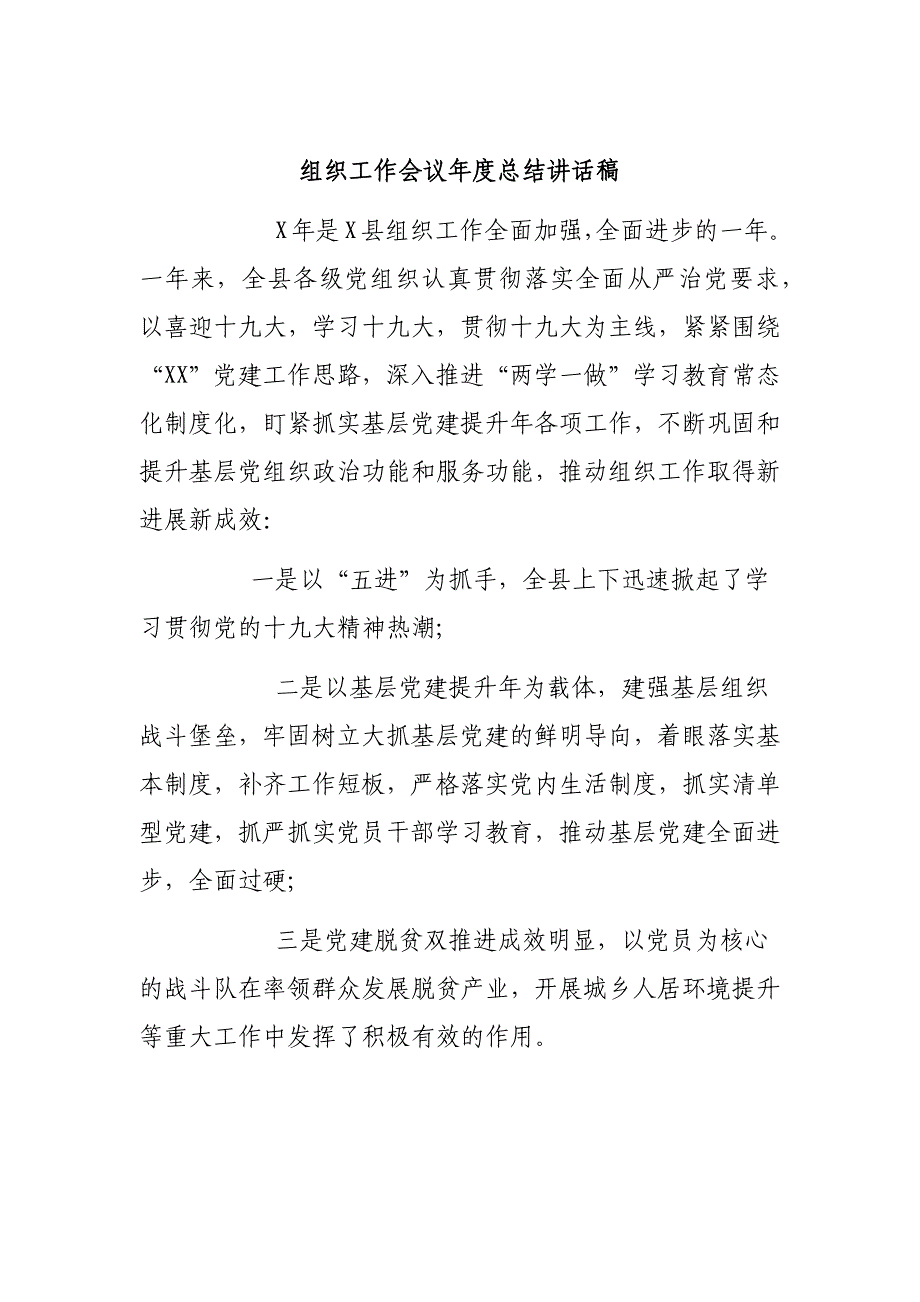 组织工作会议年度总结讲话稿
X年是X县组织工作全面加强,全面进步的一年。
一年来，全县各级党组织认真贯彻落实全面从严治党要求,
以喜迎十九大，学习十九大，贯彻十九大为主线，紧紧围绕
“XX”党建工作思路，深入推进“两学一做”学习教育常态
化制度化，盯紧抓实基层党建提升年各项工作，不断巩固和
提升基层党组织政治功能和服务功能，推动组织工作取得新
进展新成效:
一是以“五进”为抓手，全县上下迅速掀起了学
习贯彻党的十九大精神热潮;
二是以基层党建提升年为载体，建强基层组织
战斗堡垒，牢固树立大抓基层党建的鲜明导向，着眼落实基
本制度，补齐工作短板，严格落实党内生活制度，抓实清单
型党建，抓严抓实党员干部学习教育，推动基层党建全面进
步，全面过硬;
三是党建脱贫双推进成效明显，以党员为核心
的战斗队在率领群众发展脱贫产业，开展城乡人居环境提升
等重大工作中发挥了积极有效的作用。